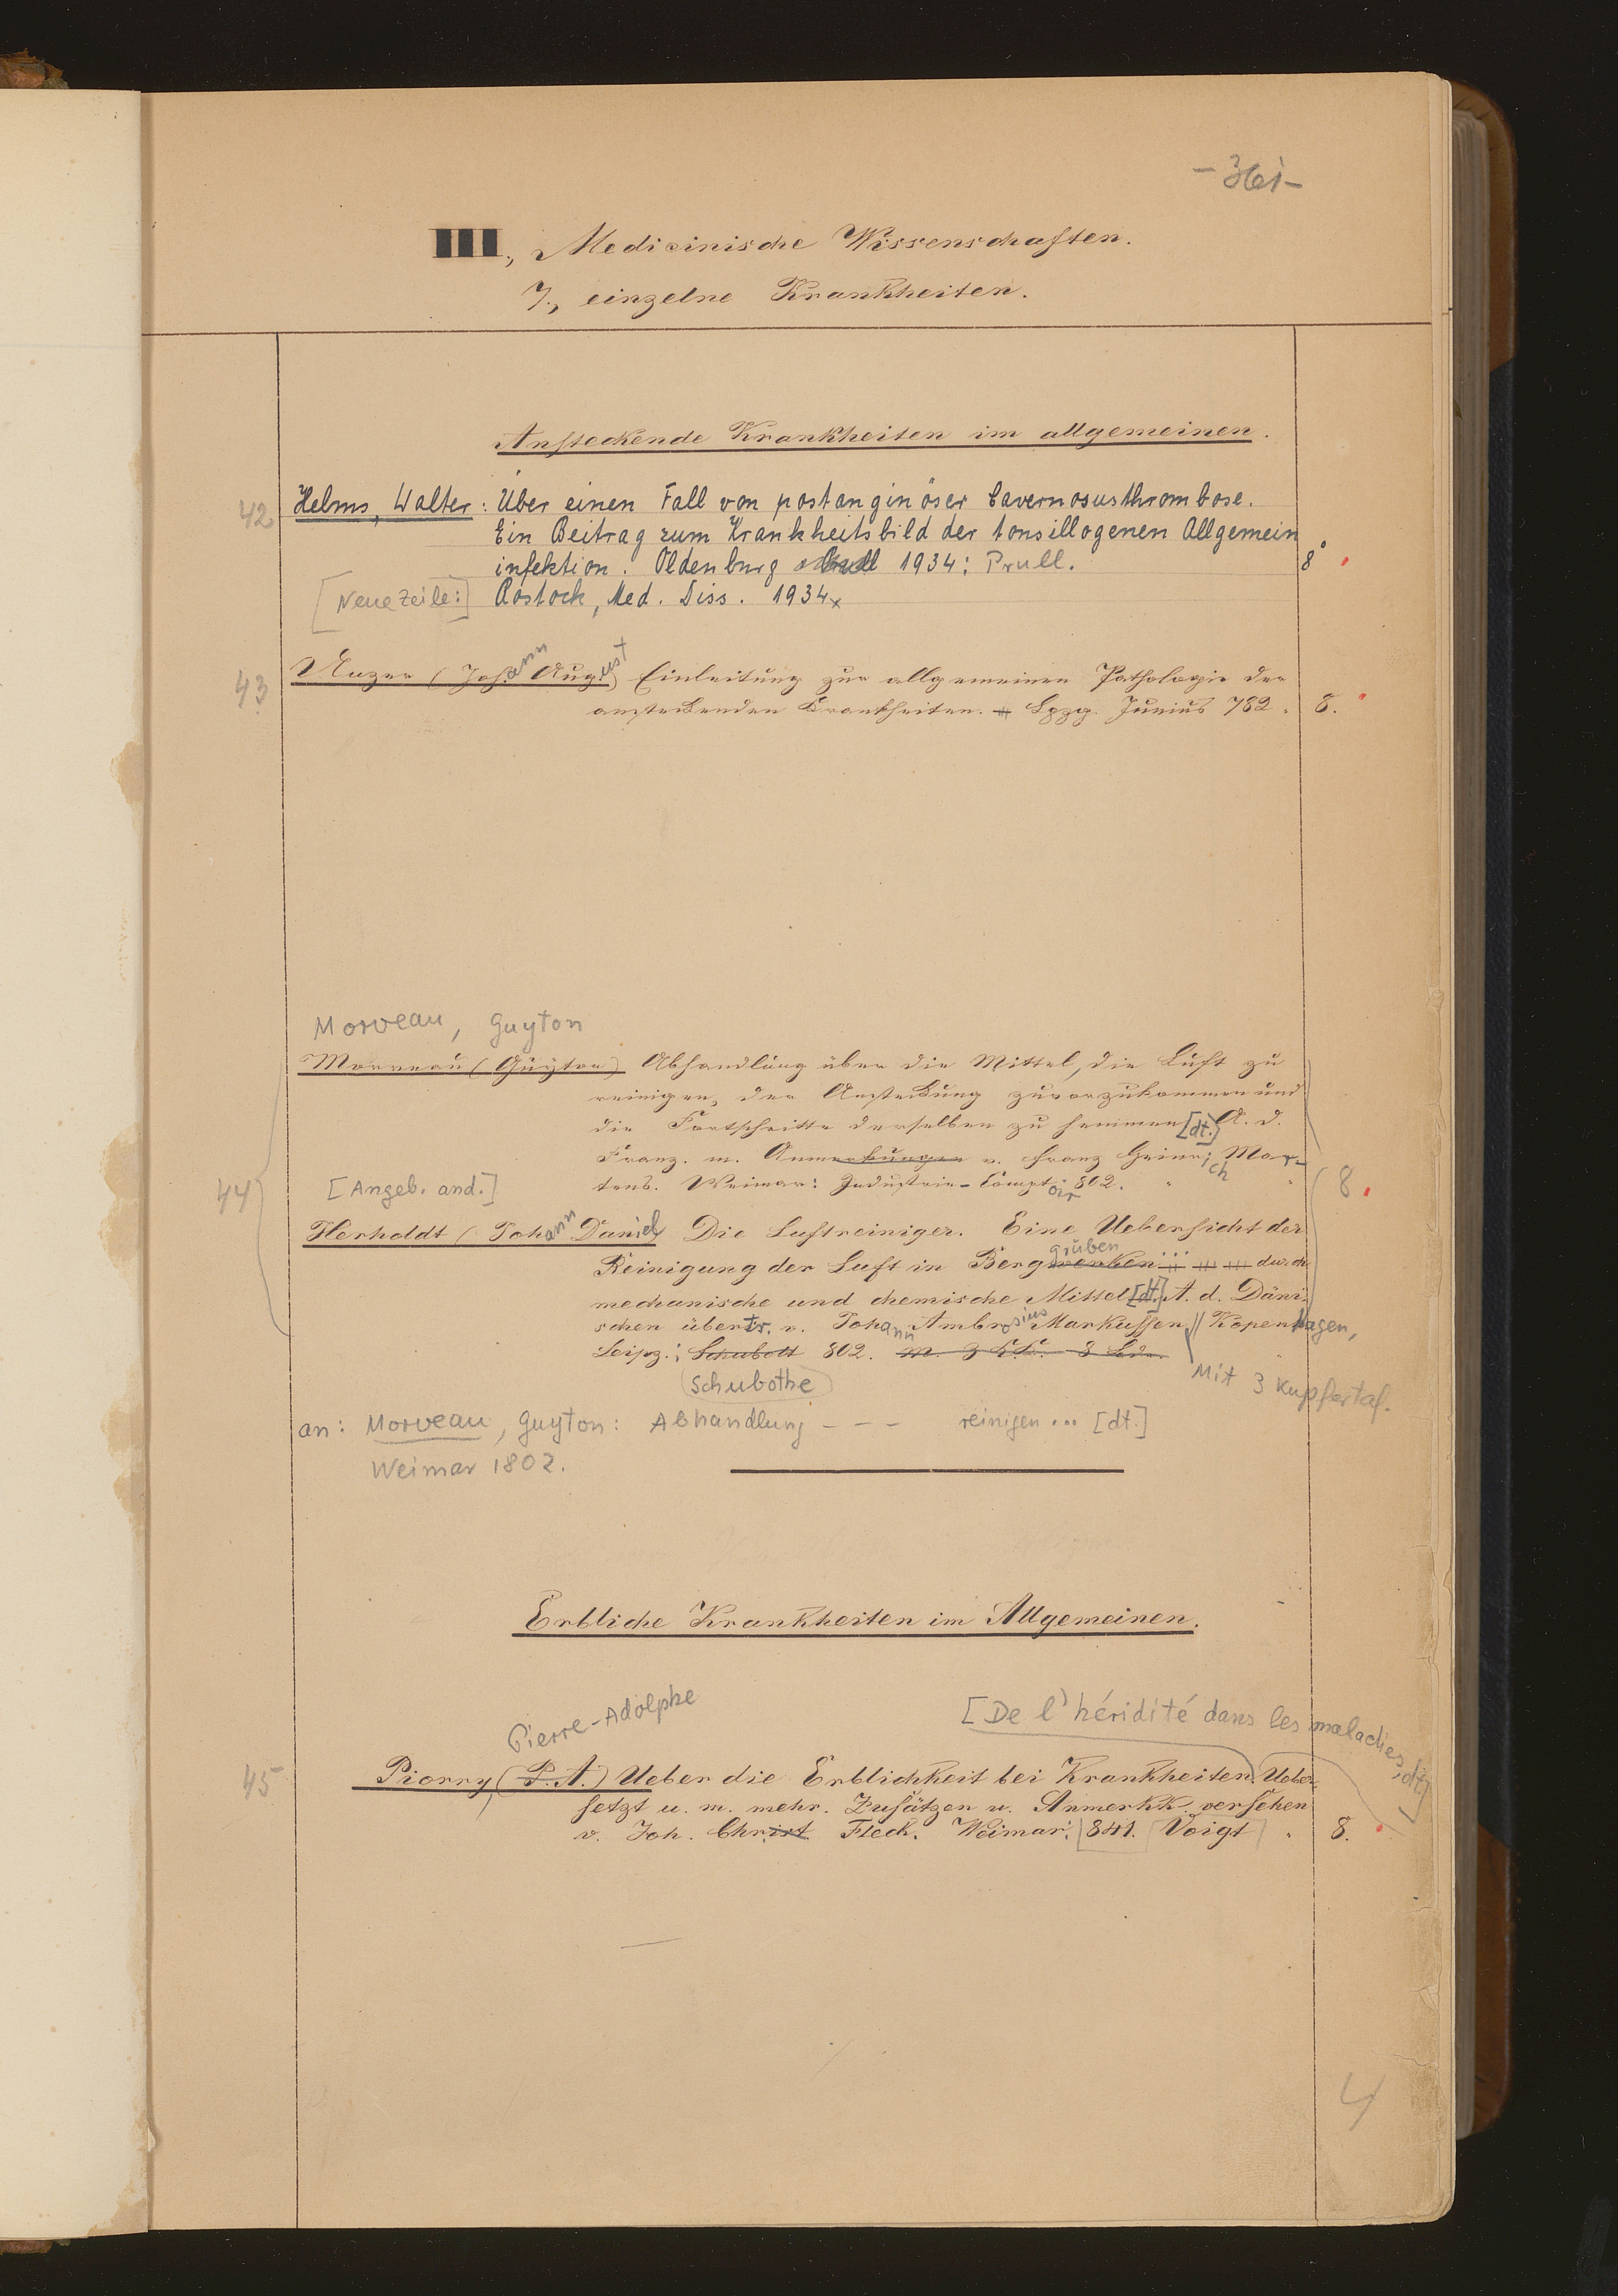 - 361 -
III., Medicinische Wissenschaften.
7., einzelne Krankheiten.
Ansteckende Krankheiten im allgemeinen.
42 Helms, Walter: Über einen Fall von postanginöser Cavernosusthrombose.
Ein Beitrag zum Krankheitsbild der tonsillogenen Allgemein
infektion. Oldenburg 1934: Prull. 8°
[Neue Zeile:] Rostock, Med. Diss. 1934
43 Unzer (Johann August) Einleitung zur allgemeinen Pathologie der
ansteckenden Krankheiten. Lpzg. Junius 782. 8.
Morveau, Guyton
Morveau (Guyton) Abhandlung über die Mittel, die Luft zu
reinigen, der Ansteckung zuvorzukommen und
die Fortschritte derselben zu hemmen [dt.] A. d.
Franz. m. Anmerkungen v. Franz Heinrich Mar-
tens. Weimar: Industrie-Comptoir 802.
44 [Angeb. and.] 8.
Herholdt (Johann Daniel Die Luftreiniger. Eine Uebersicht der
Reinigung der Luft in Bergwerken gruben durch
mechanische und chemische Mittel [dt.] A. d. Däni-
schen übertr. v. Johann Ambrosius Markussen // Kopenhagen,
Leipz.: Schubott 802. m. 3
Schubothe Mit 3 Kupfertaf.
an: Morveau, Guyton: Abhandlung - - - reinigen ... [dt.]
Weimar 1802.
Erbliche Krankheiten im Allgemeinen.
Pierre-Adolphe [De l'héridité dans les maladies, dt.]
45 Piorry, (P. A.) Ueber die Erblichkeit bei Krankheiten. Ueber-
setzt u. m. mehr. Zusätzen u. Anmerkk. versehen
v. Joh. Christ Fleck. Weimar: 841. Voigt 8.
4